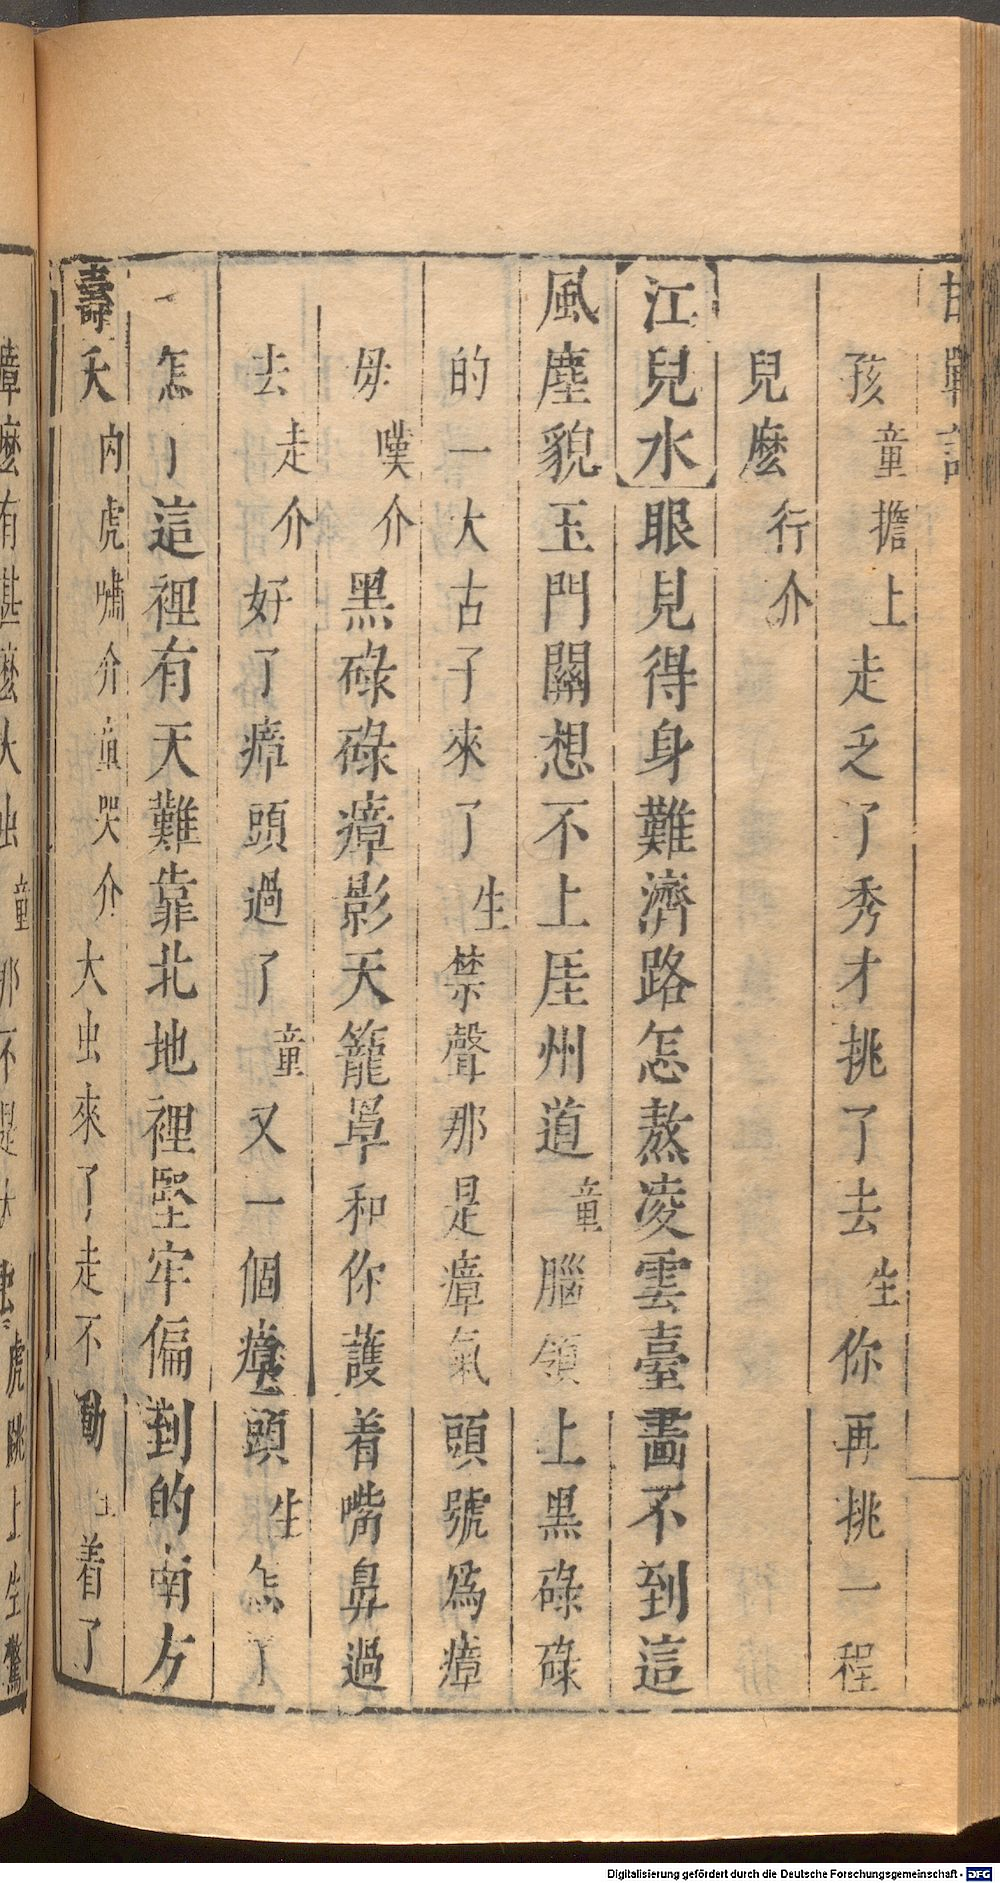 邯鄲記
孩童擔上走乏了秀才挑了去生你再挑一程
兒麽行介
江兒水眼見得身難濟路怎熬凌雲臺畫不到這
風塵貌玉門關想不上厓州道童腦領上黑碌碌
的一大古子來了生禁聲那是瘴氣頭號爲瘴
毋嘆介黑碌碌瘴影天籠罩和你護着嘴鼻過
去走介好了瘴頭過了童又一個瘴頭生怎了
怎了這裡有天難靠北地裡堅牢偏對的南方
壽夭內虎嘯介童哭介大虫來了走不動生着了
瘴麽有甚麽大虫童那不是大虫虎跳上生驚
Digitalisierung gefördert durch die Deutsche Forschungsgemeinschaft - DFG